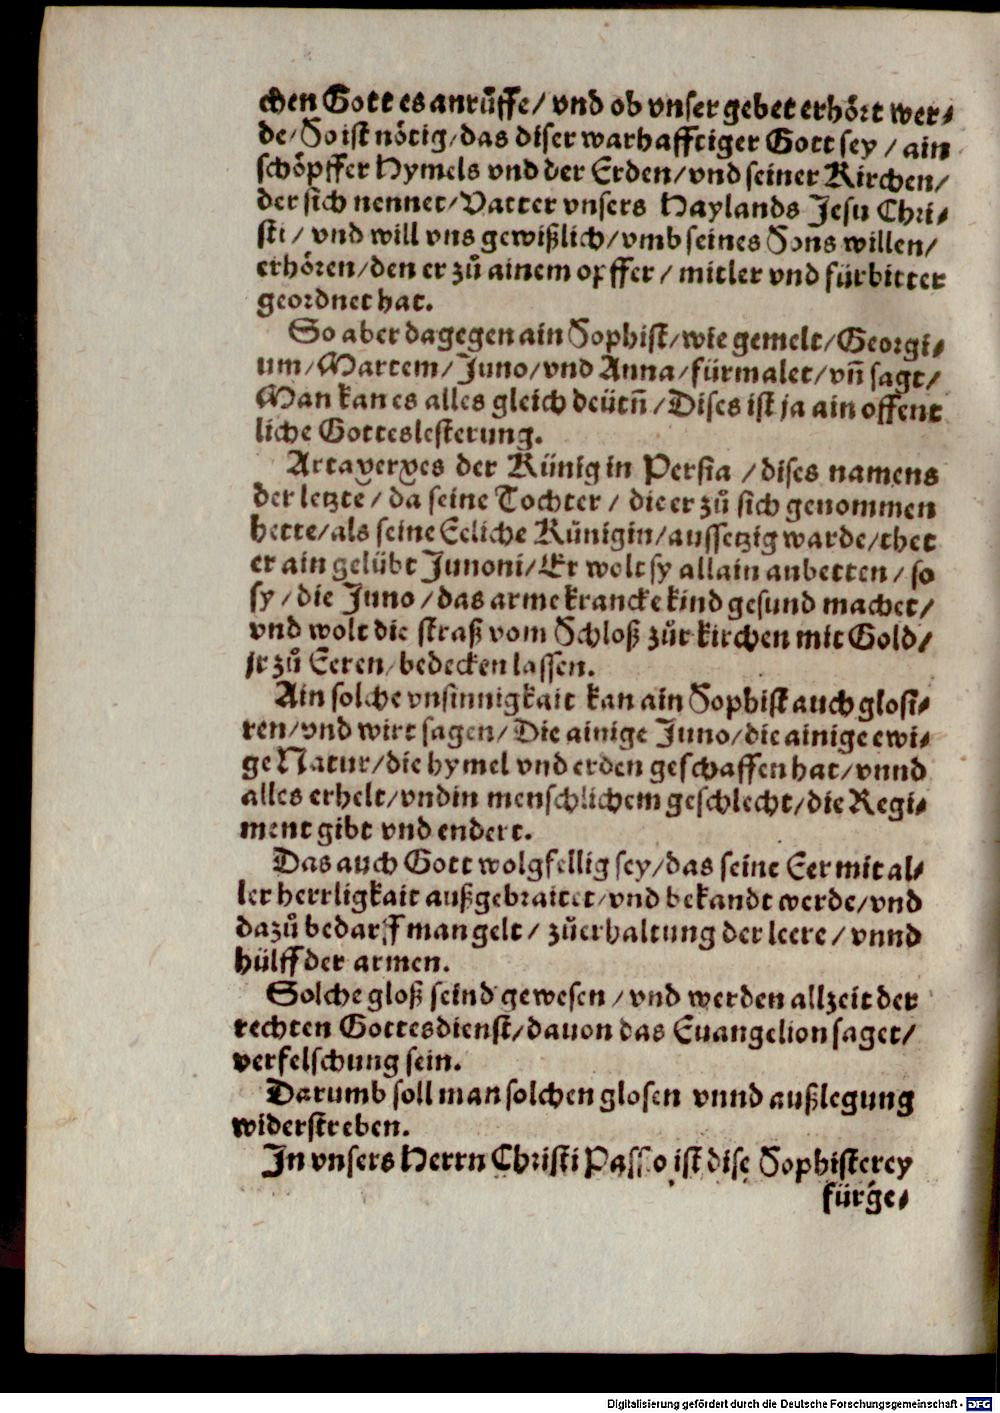 chen Gott es anrůffe / vnd ob vnser gebet erhört wer⸗
de / So ist nötig / das diser warhafftiger Gott sey / ain
schöpffer Hymels vnd der Erden / vnd seiner Kirchen /
der sich nennet / Vatter vnsers Haylands Jesu Chri⸗
sti / vnd will vns gewißlich / vmb seines Sons willen /
erhören / den er zů ainem opffer / mitler vnd fürbitter
geordnet hat.
So aber dagegen ain Sophist / wie gemelt / Georgi⸗
um / Martem / Juno / vnd Anna / fürmalet / vñ sagt /
Man kan es alles gleich deütñ / Dises ist ja ain offent
liche Gotteslesterung.
Artaxerxes der Künig in Persia / dises namens
der letzte / da seine Tochter / die er zů sich genommen
hette / als seine Eeliche Künigin / aussetzig warde / thet
er ain gelübt Junoni / Er wolt sy allain anbetten / so
sy / die Juno / das arme krancke kind gesund machet /
vnd wolt die straß vom Schloß zůr kirchen mit Gold /
jr zů Eeren / bedecken lassen.
Ain solche vnsinnigkait kan ain Sophist auch glosi⸗
ren / vnd wirt sagen / Die ainige Juno / die ainige ewi⸗
ge Natur / die hymel vnd erden geschaffen hat / vnnd
alles erhelt / vnd in menschlichem geschlecht / die Regi⸗
ment gibt vnd endert.
Das auch Gott wolgfellig sey / das seine Eer mit al⸗
ler herrligkait außgebraitet / vnd bekandt werde / vnd
dazů bedarff man gelt / zůerhaltung der leere / vnnd
hülff der armen.
Solche gloß seind gewesen / vnd werden allzeit der
rechten Gottesdienst / dauon das Euangelion saget /
verfelschung sein.
Darumb soll man solchen glosen vnnd außlegung
widerstreben.
In vnsers Herrn Christi Passio ist dise Sophisterey
fürge⸗
Digitalisierung gefördert durch die Deutsche Forschungsgemeinschaft - DFG